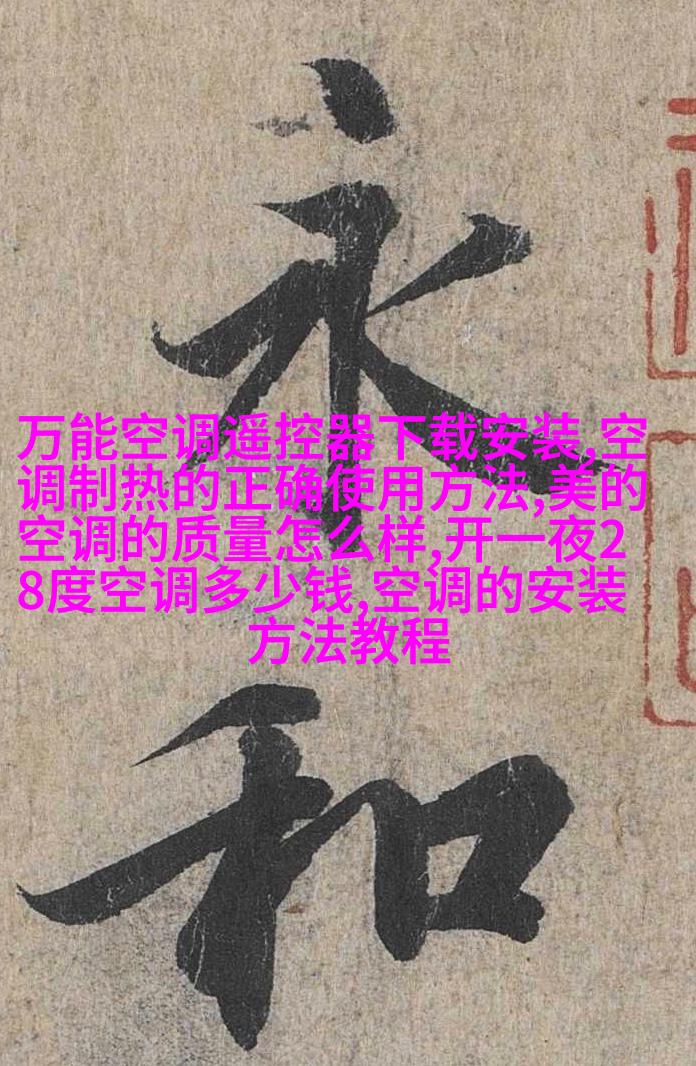 永
万能空调遥控器下载安装,空
调制热的正确使用方法,美的
空调的质量怎么样,开一夜2
8度空调多少钱,空调的安装
方法教程
和